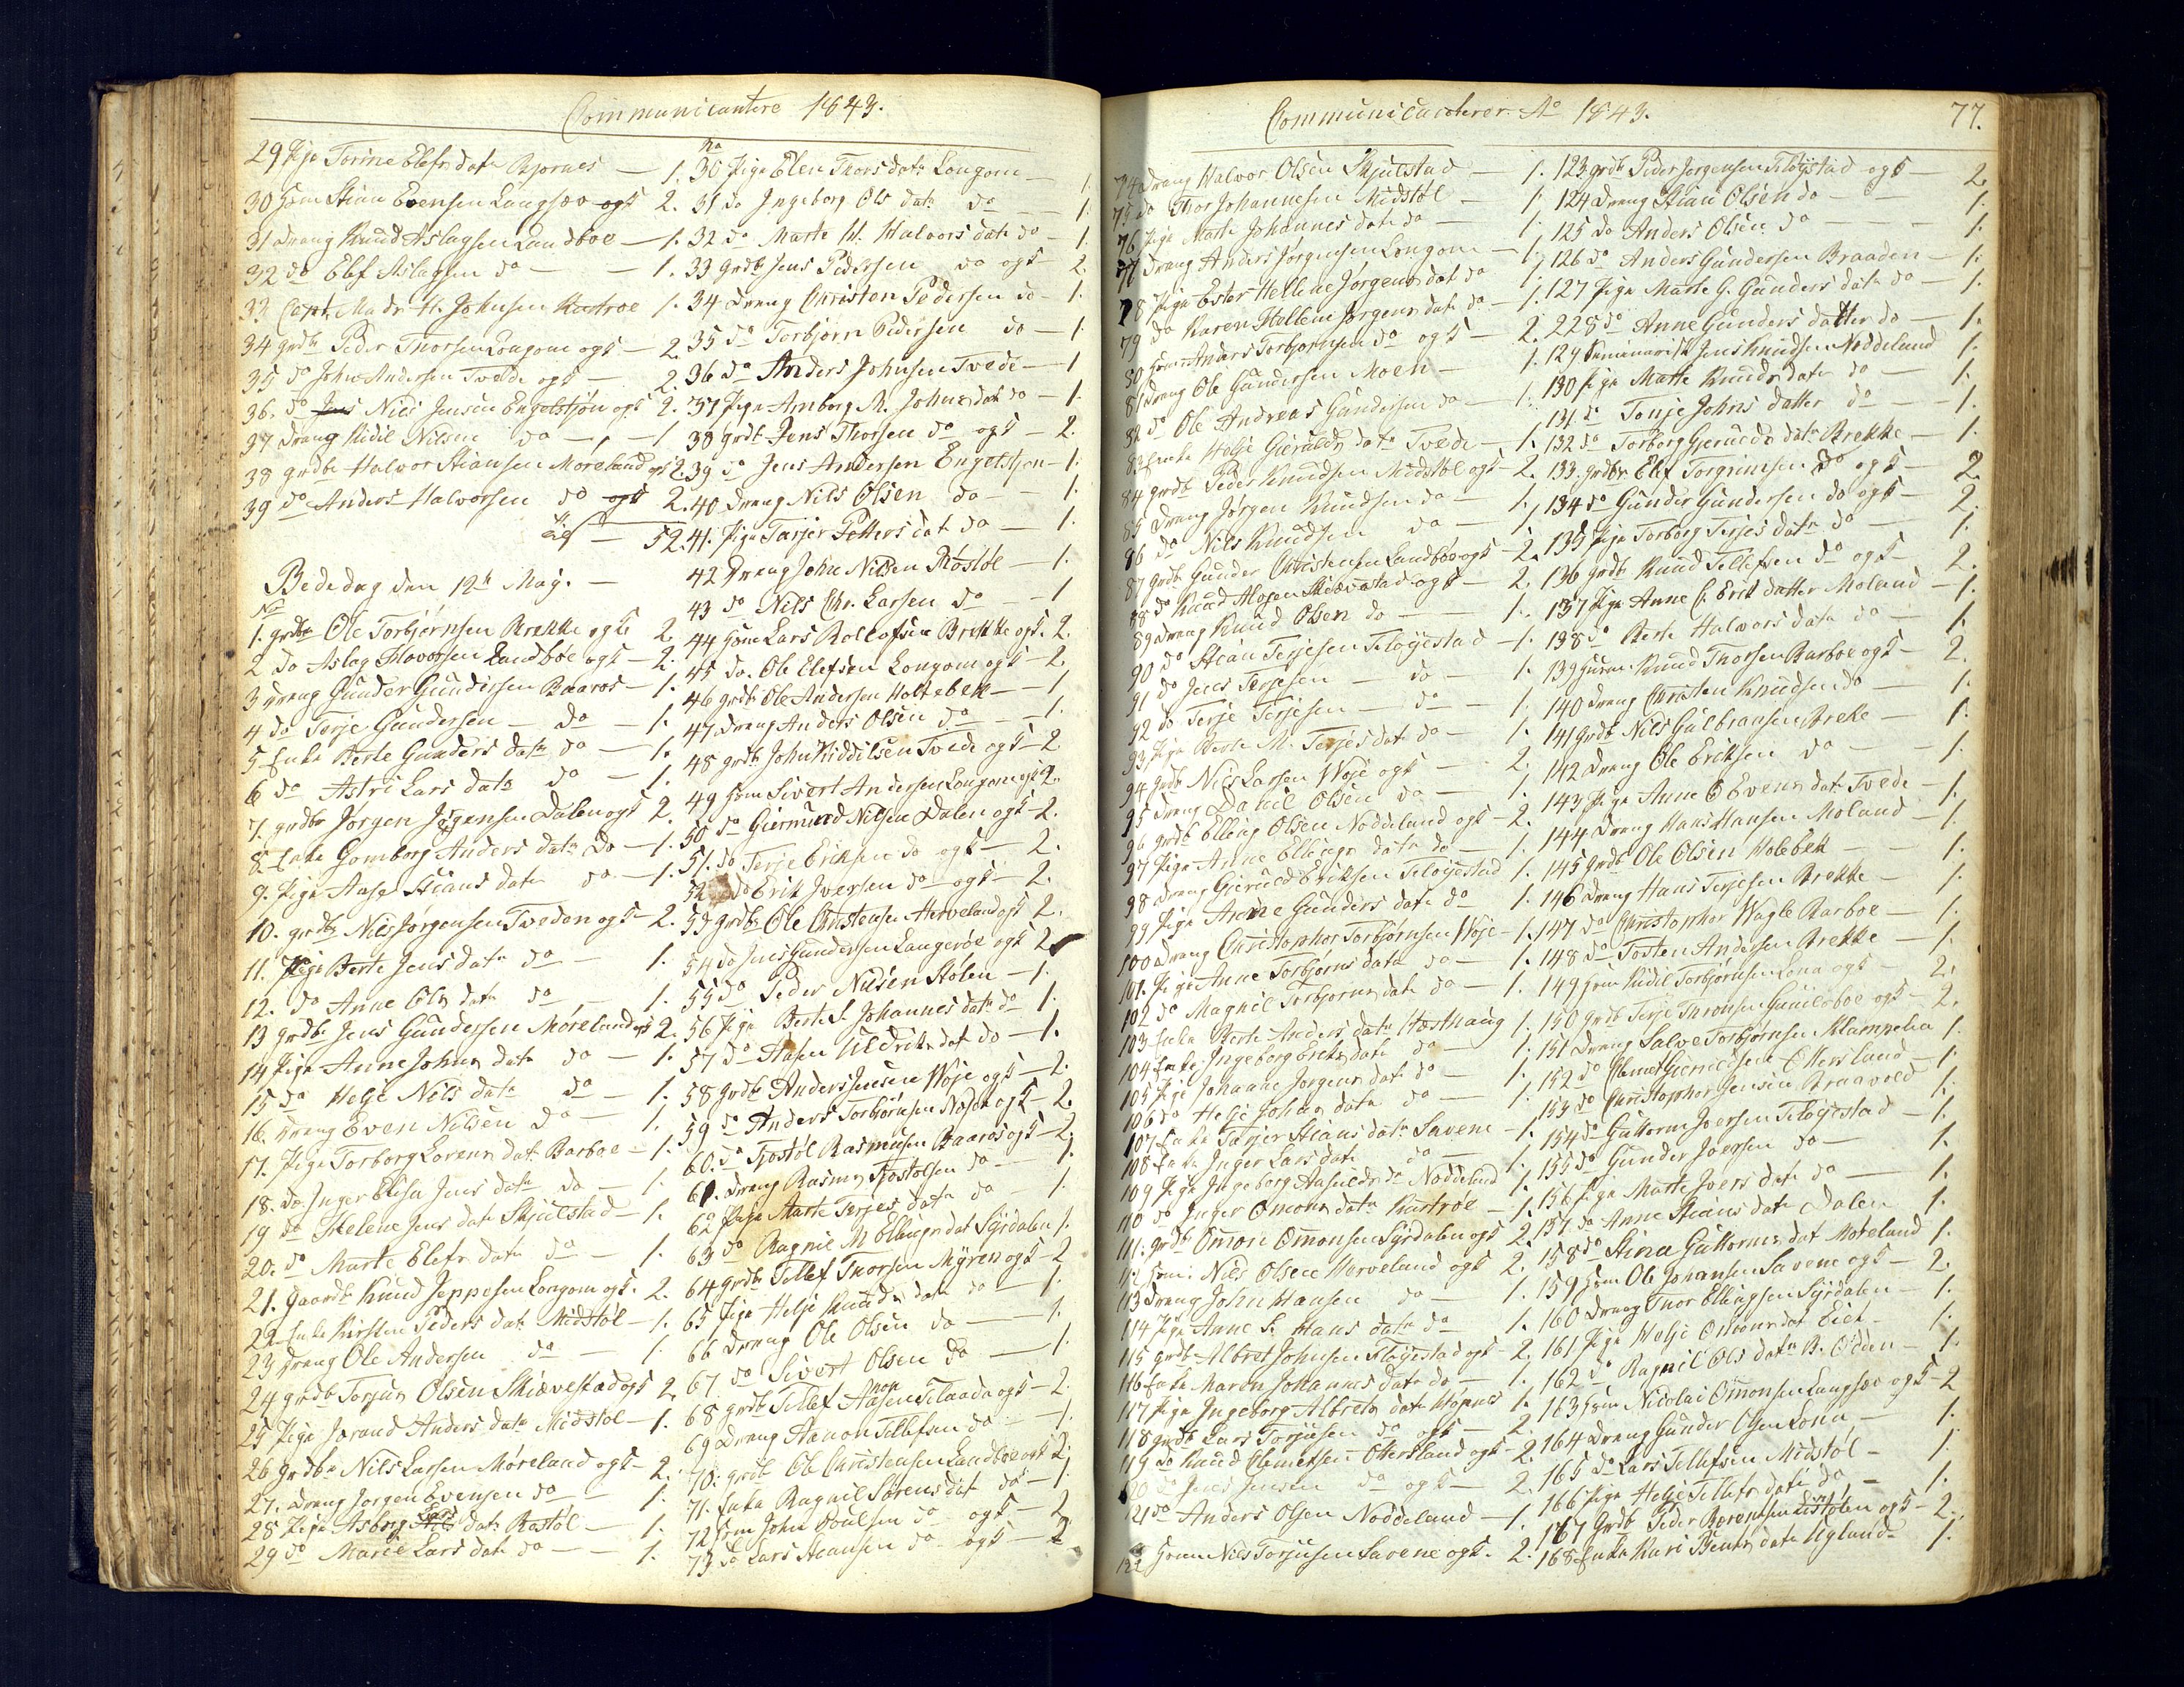 Communicantere 1843.
29 Pige Torine Elefs datr Bjornes — 1.
30 Huusm Stian Evensen Langsæv ogk 2.
31 Dreng Knud Aslagsen Landboe — 1.
32 do Elef Aslagsen do — 1.
33 Capt. Madr. H. Johnsen Kastroe 1.
34 grdbr Peder Thorsen Longom ogk — 2.
35 do John Andersen Tvede ogk — 2.
36. do Nils Jensen Engelstjøn ogk 2.
37 Dreng Kidil Nilsen do — 1
38 grdbr Halvor Stiansen Moreland ogk 2.
39 do Anders Halvorsen do ogk 2.
52.
Bededag den 12te May. —
No
1. grdbr Ole Torbjørnsen Brekke ogk 2.
2 do Aslag Halvorsen Landbøe ogk — 2.
3 Dreng Gunder Gundersen Baaros — 1.
4 do Terje Gundersen — do — 1.
5 Enke Berte Gunders datr do — 1.
6 do Astri Lars datr do — 1.
7. grdbr Jørgen Jørgensen Dalen ogk 2.
8 Enke Gomborg Anders datr do — 1.
9. Pige Aase Stians datr do — 1.
10. grdbr Nils Jørgensen Tveden ogk — 2.
11. Pige Berte Jens datr do — 1.
12. do Anne Ols datr do — 1.
13 grdbr Jens Gundersen Møreland ogk 2.
14 Pige Anne Johns datr do — 1.
15 do Helje Nils datr do — 1.
16. Dreng Even Nilsen do — 1.
17. Pige Torborg Lorens dat. Barboe — 1.
18. do Inger Elisa Jens datr do — 1.
19 do Helene Jens datr Skjulstad — 1.
20. do Marte Elefs datr do — 1.
21. Gaardbr Knud Jeppesen Longom ogk. 2.
22 Enke Kirsten Peders datr Midstøl — 1.
23 Dreng Ole Andersen do — 1.
24 grdbr Torjus Olsen Skiævestad ogk 2.
25 Pige Jorand Anders datr Midstøl — 1.
26 grdbr Nils Larsen Møreland ogk — 2.
27. Dreng Jorgen Evensen do — 1.
28 Pige Asborg Lars datr Rostøl — 1.
29 do Marie Lars dat do — 1.
No
30 Pige Elen Thors datr Longom — 1.
31 do Ingeborg Ols datr do — 1.
32 do Marte H. Halvors datr do — 1.
33 grdbr Jens Pedersen do ogk — 2.
34 Dreng Christen Pedersen do — 1.
35 do Torbjørn Pedersen do — 1.
36 do Anders Johnsen Tvede — 1
37 Pige Amborg M. Johns dat do — 1.
38 grdbr Jens Thorsen do ogk — 2.
39 do Jens Andersen Engelstjøn — 1.
40 Dreng Nils Olsen do — 1.
41. Pige Tarjer Petters dat do — 1.
42 Dreng John Nilsen Røstøl — 1.
43 do Nils Chr. Larsen do — 1
44 Huusm Lars Rollefsen Brekke ogk. 2.
45 do. Ole Elefsen Longom ogk — 2.
46 grdbr Ole Andersen Holtebek — 1
47 Dreng Anders Olsen do — 1.
48 grdbr John Kiddilsen Tvede ogk — 2
49 Huusm Sivert Andersen Longom ogk 2.
50 do Giermund Nilsen Dalen ogk — 2.
51. do Terje Eriksen do ogk — 2.
52 do Erik Iversen do ogk — 2.
53 grdbr Ole Christensen Herveland ogk 2.
54 do Jens Gundersen Langerøe ogk 2
55 do Peder Nilsen Stølen — 1.
56 Pige Berte S. Johannes datr do 1.
57 do Aasen Uldriks dat do — 1.
58 grdbr Anders Jensen Woje ogk — 2.
59 do Anders Torbjørnsen Næsen ogk — 2.
60. do Tjostøl Rasmusen Baaros ogk — 2.
61. Dreng Rasmus Tjostolsen do — 1.
62 Pige Marte Terjes datr do — 1.
63 do Ragnil M Ellings dat Syrdalen 1.
64 grdbr Tellef Thorsen Myren ogk — 2
65 Pige Helje Knuds datr do — 1.
66 Dreng Ole Olsen do — 1.
67 do Sivert Olsen do — 1.
68 grdbr Tellef Aanonsen Tilaada ogk — 2.
69 Dreng Aanon Tellefsen do — 1.
70. grdbr Ole Christensen Landboe ogk 2.
71. Enke Ragnil Sørens dat do — 1.
72 Huusm John Poulsen do ogk — 2
73 do Lars Stiansen do ogk — 2
Communicanterer Ao 1843.
77.
74 Dreng Halvor Olsen Skjulstad — 1.
75 do Thor Johannesen Midstøl — 1.
76 Pige Marte Johannes datr do — 1.
77 Dreng Anders Jørgensen Longom — 1.
78 Pige Ester Hellene Jørgens dat do 1.
79 do Karen Hellene Jørgens dat. do — 1.
80 Huusm Anders Torbjornsen do ogk — 2.
81 Dreng Ole Gundersen Moen — 1.
82 do Ole Andreas Gundersen do — 1.
83 Enke Helje Gieruldsdatr Tvede — 1.
84 grdbr Peder Knudsen Midstøl ogk — 2.
85 Dreng Jørgen Knudsen do — 1.
86 do Nils Knudsen do — 1.
87 grdbr Gunder Christensen Landbøe ogk — 2.
88 do Knud Alosen Skiævestad ogk — 2.
89 Dreng Knud Olsen do — 1.
90 do Stian Terjesen Fløystad — 1.
91 do Jens Terjesen — do — 1.
92 do Terje Terjesen — do — 1.
93 Pige Berte M. Terjes dat do — 1.
94 grdbr Nils Larsen Woje ogk — 2.
95 Dreng Daniel Olsen do — 1.
96 grdbr Elling Olsen Noddeland ogk — 2.
97 Pige Anne Ellings datr do — 1.
98 Dreng Gieruld Eriksen Fløystad 1.
99 Pige Anne Gunders datr do 1.
100 Dreng Christopher Torbjørnsen Woje — 1.
101. Pige Anne Torbjorns datr do — 1.
102 do Magnil Torbjorns datr do — 1.
103 Enke Berte Anders datr Hæsthaug 1.
104 Enke Ingeborg Eriks datr do — 1.
105 Pige Johanne Jorgens dat do — 1.
106 do Helje Johns datr do — 1.
107 Enke Tarjer Stians datr Savene — 1.
108 Enke Inger Lars datr do — 1.
109 Pige Ingeborg Aasulds dr Noddeland 1.
110 do Inger Omons datr Kastrøe — 1.
111. grdbr Omon Omonsen Syrdalen ogk 2.
112 Huusm. Nils Olsen Herveland ogk 2.
113 Dreng John Hansen do — 1.
114 Pige Anne S. Hans datr do 1.
115 grdbr Albret Johnsen Fløystad ogk — 2.
116 Enke Maren Johannes datr do — 1.
117 Pige Ingeborg Albrets datr Hopnes 1.
118 grdbr Lars Torjusen do ogk — 2.
119 do Knud Clemetsen Ottersland ogk — 2.
120 do Jens Jensen do ogk — 2.
121 do Anders Olsen Noddeland — 1.
122 Huusm Nils Torjusen Savene ogk. 2.
123 grdbr Peder Jørgensen Fløystad ogk — 2.
124 Dreng Stian Olsen do — 1.
125 do Anders Olsen do — 1.
126 do Anders Gundersen Braaden — 1.
127 Pige Marte G. Gunders datr do — 1.
228 do Anne Gunders datter do — 1.
129 Seminarist Jens Knudsen Noddeland 1.
130 Pige Marte Knuds datr do — 1.
131. do Tonje Johns datter do — 1.
132 do Torborg Gjerulds datr Brekke — 1.
133. grdbr Elef Torgrimsen do ogk — 2.
134 do Gunder Gundersen do ogk — 2.
135 Pige Torborg Terjes datr do — 1.
136 grdbr Knud Tellefsen do ogk 2.
137 Pige Anne C. Erik datter Moland — 1.
138 do Berte Halvors datr do — 1.
139 Huusm Knud Thorsen Barboe ogk — 2.
140 Dreng Christen Knudsen do — 1.
141 grdbr Nils Gulbransen Breke — 1.
142 Dreng Ole Eriksen do — 1.
143 Pige Anne O Evens dat Tvede — 1.
144 Dreng Hans Hansen Moland — 1.
145 grdbr Ole Olsen Holebek — 1.
146 Dreng Hans Terjesen Brekke — 1.
147 do Christopher Wagle Barboe — 1.
148 do Tosten Andersen Brekke — 1.
149 Huusm Kidil Torbjørnsen Lona ogk — 2.
150 grdbr Terje Thronsen Gunildboe ogk — 2.
151 Dreng Salve Torbjørnsen Klampelia 1.
152 do Clemet Gieruldsen Ottersland — 1.
153 do Christopher Jensen Braavold 1.
154 do Guttorm Joersen Fløystad — 1.
155 do Gunder Joersen do — 1.
156 Pige Marte Joers datr do — 1.
157 do Anne Stians datr Dalen 1.
158 do Stina Guttorms dat Moreland 1.
159 Huusm Ole Johansen Savene ogk — 2.
160 Dreng Thor Ellingsen Syrdalen — 1.
161 Pige Helje Omons dat Eiet — 1.
162 do Ragnil Ols datr B. Odden — 1.
163 Huusm Nicolai Omonsen Langsæv ogk — 2
164 Dreng Gunder Olsen Lona — 1.
165 do Lars Tellefsen Midstøl — 1.
166 Pige Helje Tellefs datr do — 1.
167 Grdbr Peder Berentsen Listølen ogk — 2.
168 Enke Kari Bents datr Ugland — 1.